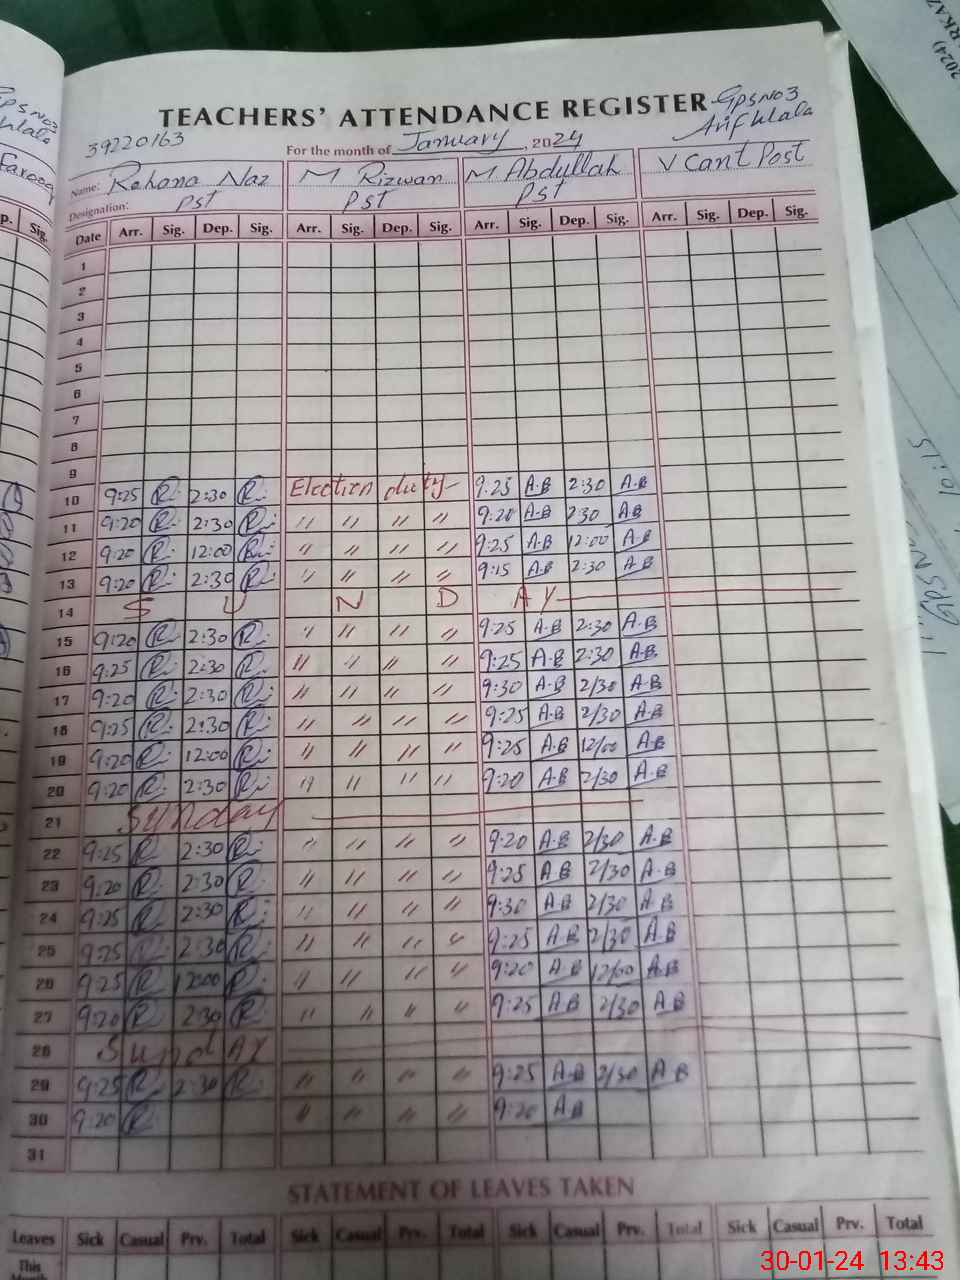 TEACHERS' ATTENDANCE REGISTER GPS NO3
39220163 For the month of January, 2024 Arif Wala
Name: Rehana Naz M Rizwan M Abdullah V Cant Post
Designation: Pst Pst Pst
Date Arr. Sig. Dep. Sig. Arr. Sig. Dep. Sig. Arr. Sig. Dep. Sig. Arr. Sig. Dep. Sig.
1
2
3
4
5
6
7
8
9
10 9:25 R 2:30 R Election duty 9:25 A.B 2:30 A.B
11 9:20 R 2:30 R " " " " 9:20 A.B 2:30 AB
12 9:20 R 12:00 R " " " " 9:25 A.B 12:00 A.B
13 9:20 R 2:30 R " " " " 9:15 A.B 2:30 A.B
14 S U N D AY
15 9:20 R 2:30 R " " " " 9:25 A.B 2:30 A.B
16 9:25 R 2:30 R " " " " 9:25 A.B 2:30 A.B
17 9:20 R 2:30 R " " " " 9:30 A.B 2/30 A.B
18 9:25 R 2:30 R " " " " 9:25 A.B 2/30 A.B
19 9:20 R 12:00 R " " " " 9:25 A.B 12/00 A.B
20 9:20 R 2:30 R " " " " 9:20 A.B 2/30 A.B
21 Sunday
22 9:25 R 2:30 R " " " " 9:20 A.B 2/30 A.B
23 9:20 R 2:30 R " " " " 9:25 A.B 2/30 A.B
24 9:25 R 2:30 R " " " " 9:30 A.B 2/30 A.B
25 9:25 R 2:30 R " " " " 9:25 A.B 2/30 A.B
26 9:25 R 12:00 R " " " " 9:20 A.B 12/00 A.B
27 9:20 R 2:30 R " " " " 9:25 A.B 2/30 A.B
28 SundAY
29 9:25 R 2:30 R " " " " 9:25 A.B 2/30 A.B
30 9:20 R " " " " 9:20 A.B
31
STATEMENT OF LEAVES TAKEN
Leaves Sick Casual Prv. Total Sick Casual Prv. Total Sick Casual Prv. Total Sick Casual Prv. Total
This
30-01-24 13:43